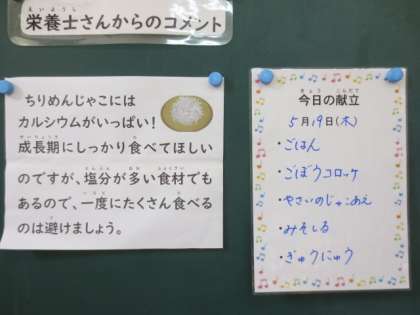 栄養士さんからのコメント
ちりめんじゃこには
カルシウムがいっぱい！
成長期にしっかり食べてほしい
のですが、塩分が多い食材でも
あるので、一度にたくさん食べる
のは避けましょう。
今日の献立
5月19日(木)
・ごはん
・ごぼうコロッケ
・やさいのじゃこあえ
・みそしる
・ぎゅうにゅう